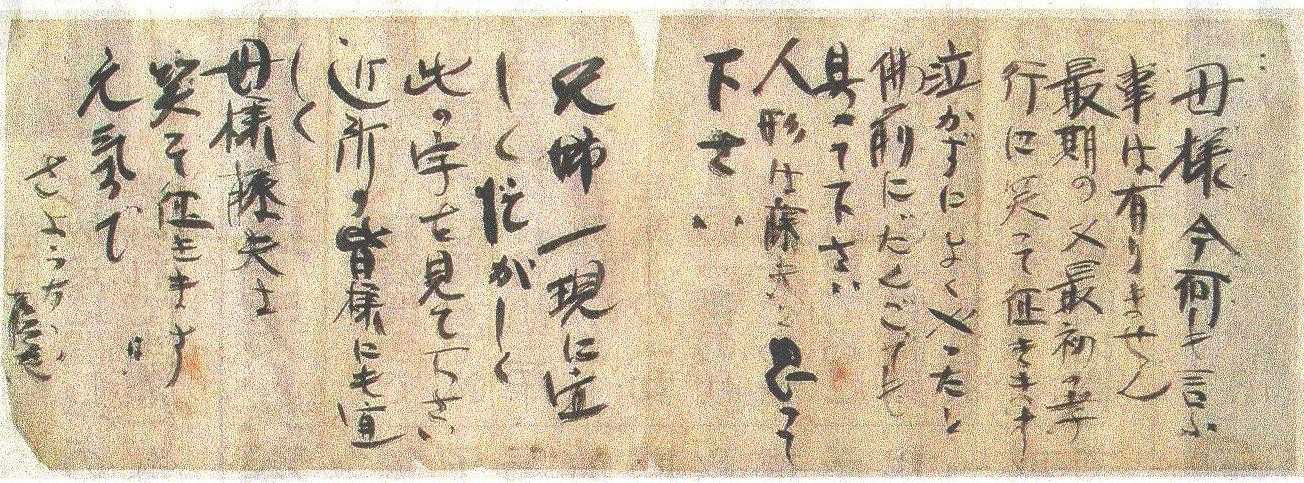 母様今何も言ふ
事は有りません
最期の又最初の孝
行に笑って征きます
泣かずによくやったと
佛前にだんごでも
具へて下さい
人形は藤夫だと思って
下さい
兄姉一現に宜
しく忙がしく
此の字を見て下さい
近所の皆様にも宜
しく
母様藤夫は
笑って征きます
元気で
さようなら